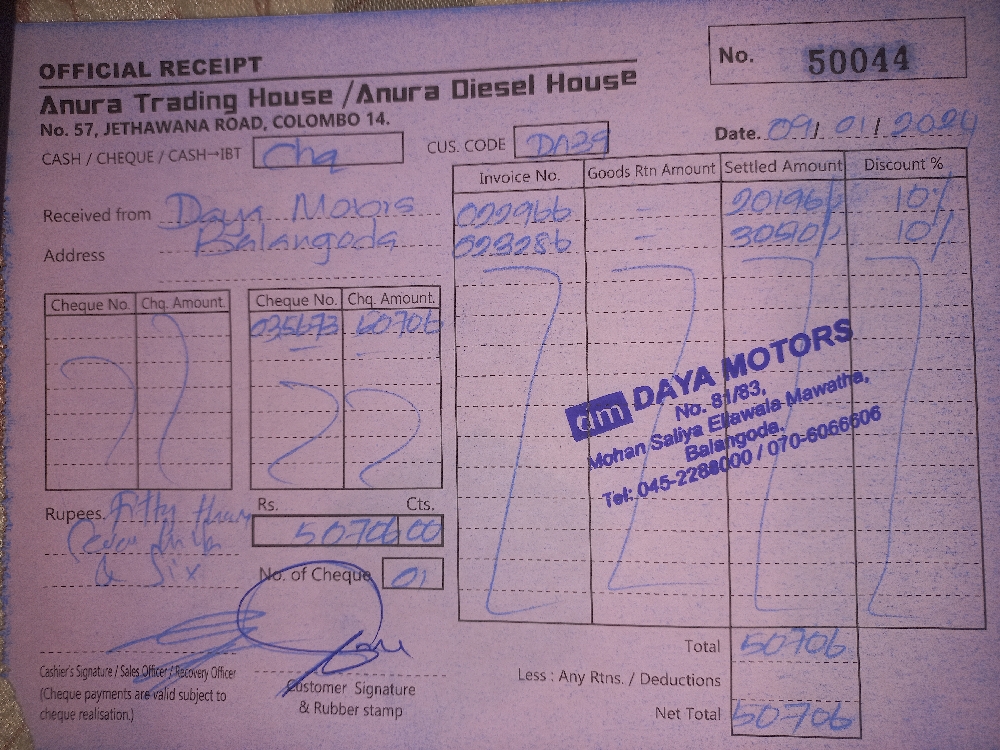 OFFICIAL RECEIPT
No. 50044
Anura Trading House / Anura Diesel House
No. 57, JETHAWANA ROAD, COLOMBO 14.
Date. 09/01/2024
CASH / CHEQUE / CASH→IBT Chq
CUS. CODE DA39
Invoice No. Goods Rtn Amount Settled Amount Discount %
Received from Daya Motors
022966 - 20196/ 10%
Address Balangoda
023286 - 30510/ 10%
Cheque No. Chq. Amount. Cheque No. Chq. Amount.
035673 50706
dm DAYA MOTORS
No. 81/83,
Mohan Saliya Ellawala Mawatha,
Balangoda.
Tel: 045-2288000 / 070-6066606
Rupees. Fifty thou
& Six
Rs. Cts.
50706 00
No. of Cheque 01
Total 50706
Less : Any Rtns. / Deductions
Net Total 50706
Cashier's Signature / Sales Officer / Recovery Officer
(Cheque payments are valid subject to
cheque realisation.)
Customer Signature
& Rubber stamp